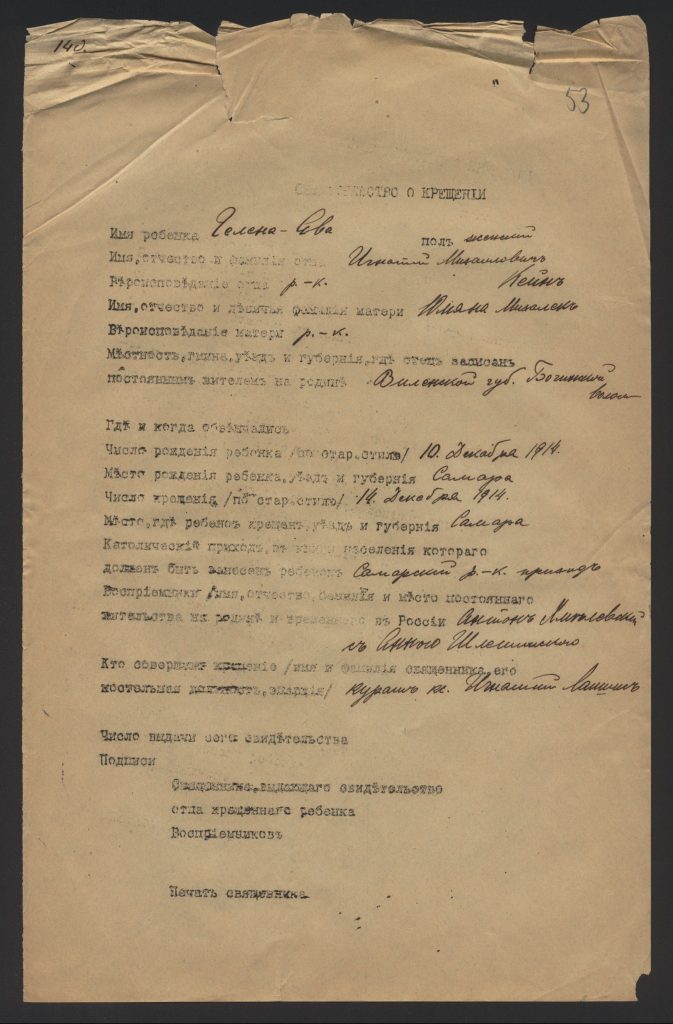 140.
53
СВИДѢТЕЛЬСТВО О КРЕЩЕНІИ
Имя ребенка Гелена-Ева полъ женскій
Имя, отчество и фамилія отца Игнатій Михаиловичъ
Вѣроисповѣданіе отца р.-к. Кейнъ
Имя, отчество и дѣвичья фамилія матери Михалекъ
Вѣроисповѣданіе матери р.-к.
Мѣстность, гмина, уѣздъ и губернія, гдѣ отецъ записанъ
постояннымъ жителемъ на родинѣ Виленской губ. Богинской
волос
Гдѣ и когда обвѣнчались
Число рожденія ребенка /по стар.стилю/ 10. Декабря 1914.
Мѣсто рожденія ребенка, уѣздъ и губернія Самара
Число крещенія /по стар.стилю/ 14. Декабря 1914.
Мѣсто, гдѣ ребенокъ крещенъ, уѣздъ и губернія Самара
Католическій приходъ, въ книги населенія котораго
долженъ быть занесенъ ребенокъ Самарскій р.-к. приходъ
Воспріемники /имя, отчество, фамилія и мѣсто постояннаго
жительства на родинѣ и временнаго въ Россіи Антонъ
съ Анною
Кто совершилъ крещеніе /имя и фамилія священника, его
костельная должность, епархія/ кс. Игнатій
Число выдачи сего свидѣтельства
Подписи
Священника, выдающаго свидѣтельство
отца крещеннаго ребенка
Воспріемниковъ
Печать священника